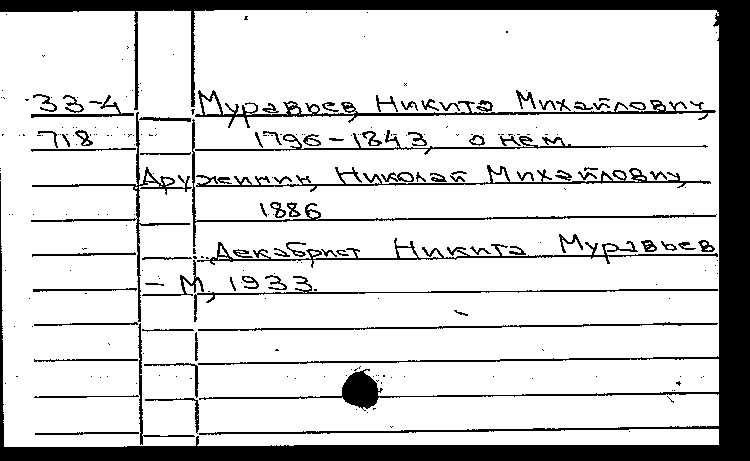 33-4 Муравьев, Никита Михайлович,
718 1796-1843, о нем.
Дружинин, Николай Михайлович,
1886
Декабрист Никита Муравьев
- М, 1933.